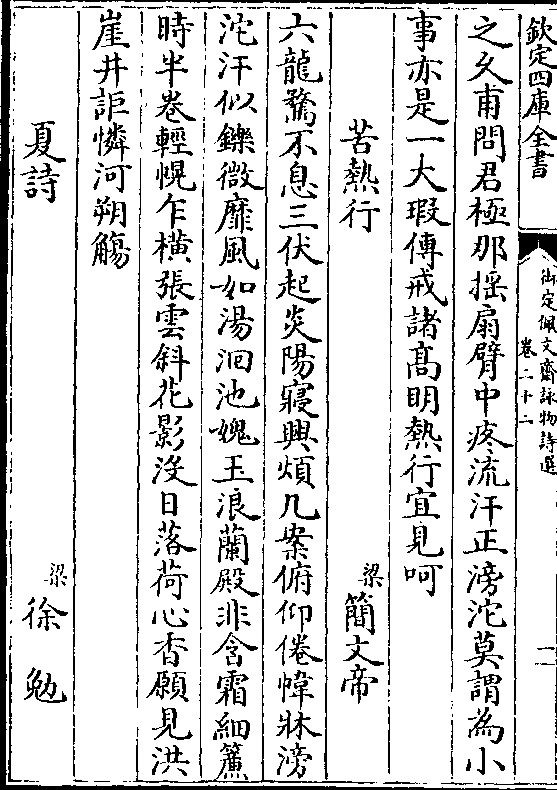 欽定四庫全書
御定佩文齋詠物詩選
卷二十二
二
之久甫問君極那摇扇臂中疼流汗正滂沱莫謂為小
事亦是一大瑕傳戒諸髙明熱行宜見呵
苦熱行
梁簡文帝
六龍騖不息三伏起炎陽寢興煩几案俯仰倦幃牀滂
沱汗似鑠微靡風如湯洄池媿玉浪蘭殿非含霜細簾
時半卷輕幌乍横張雲斜花影没日落荷心香願見洪
崖井詎憐河朔觴
夏詩
梁徐勉